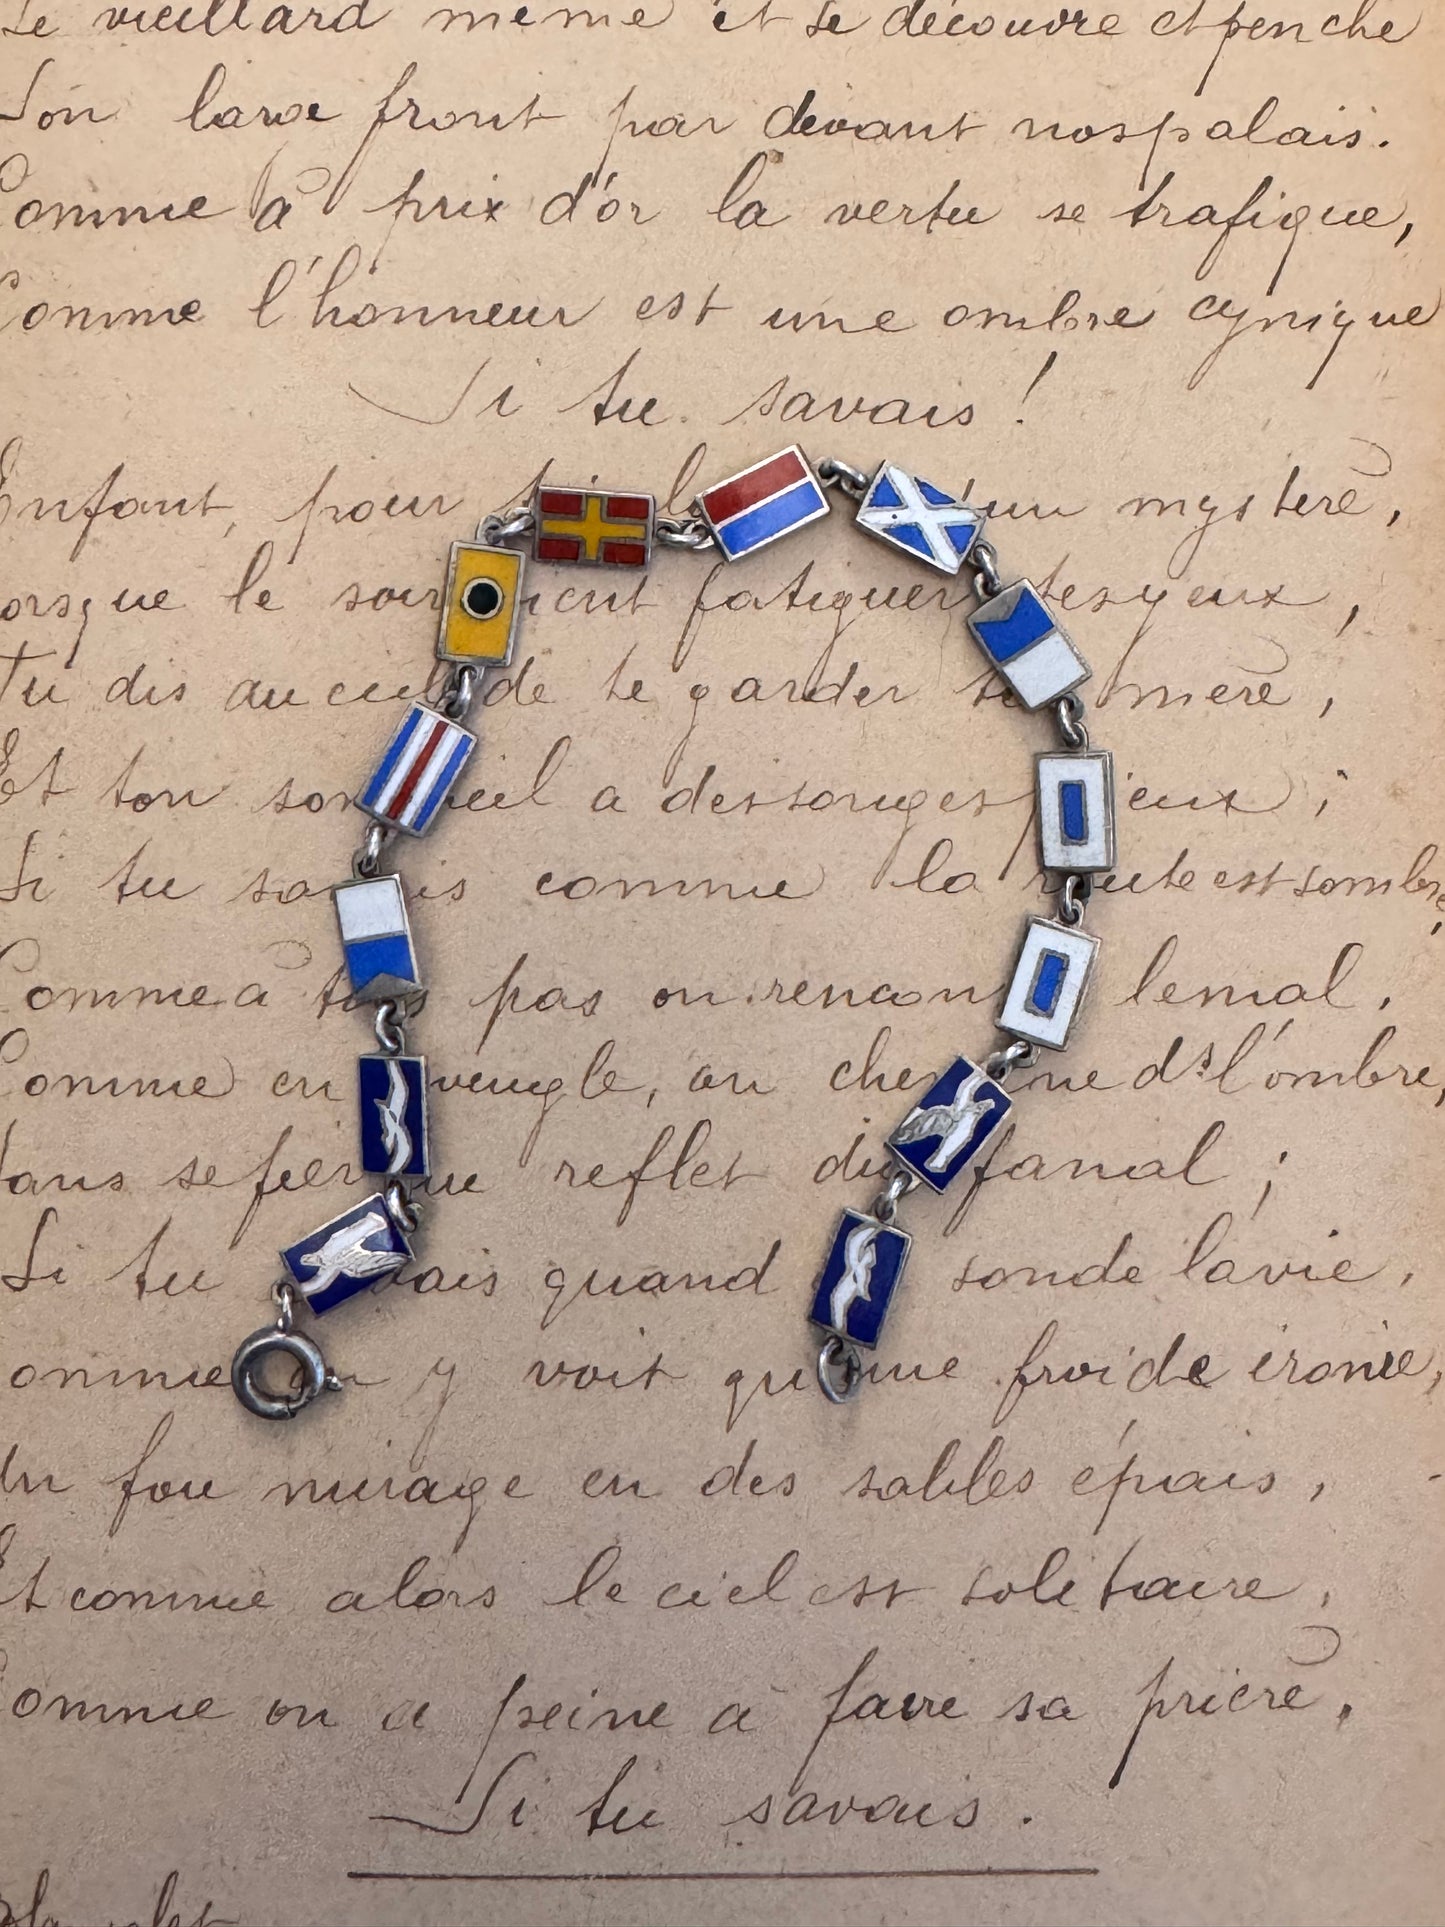 Le vieillard même et se découvre et penche
Son large front par devant nos palais.
Comme à prix d'or la vertu se trafique,
Comme l'honneur est une ombre cynique
Si tu savais !
Enfant, pour un mystère,
Lorsque le soir vient fatiguer tes yeux,
Tu dis au ciel de te garder ta mère,
Et ton sommeil a des songes pieux ;
Si tu savais comme la route est sombre,
Comme à tous pas on rencontre le mal,
Comme en aveugle, on chemine ds l'ombre,
Sans se fier que reflet du fanal ;
Si tu savais quand sonde la vie,
Comme on y voit qu'une froide ironie,
Un fou mirage en des sables épais,
Et comme alors le ciel est solitaire,
Comme on a peine à faire sa prière,
Si tu savais.